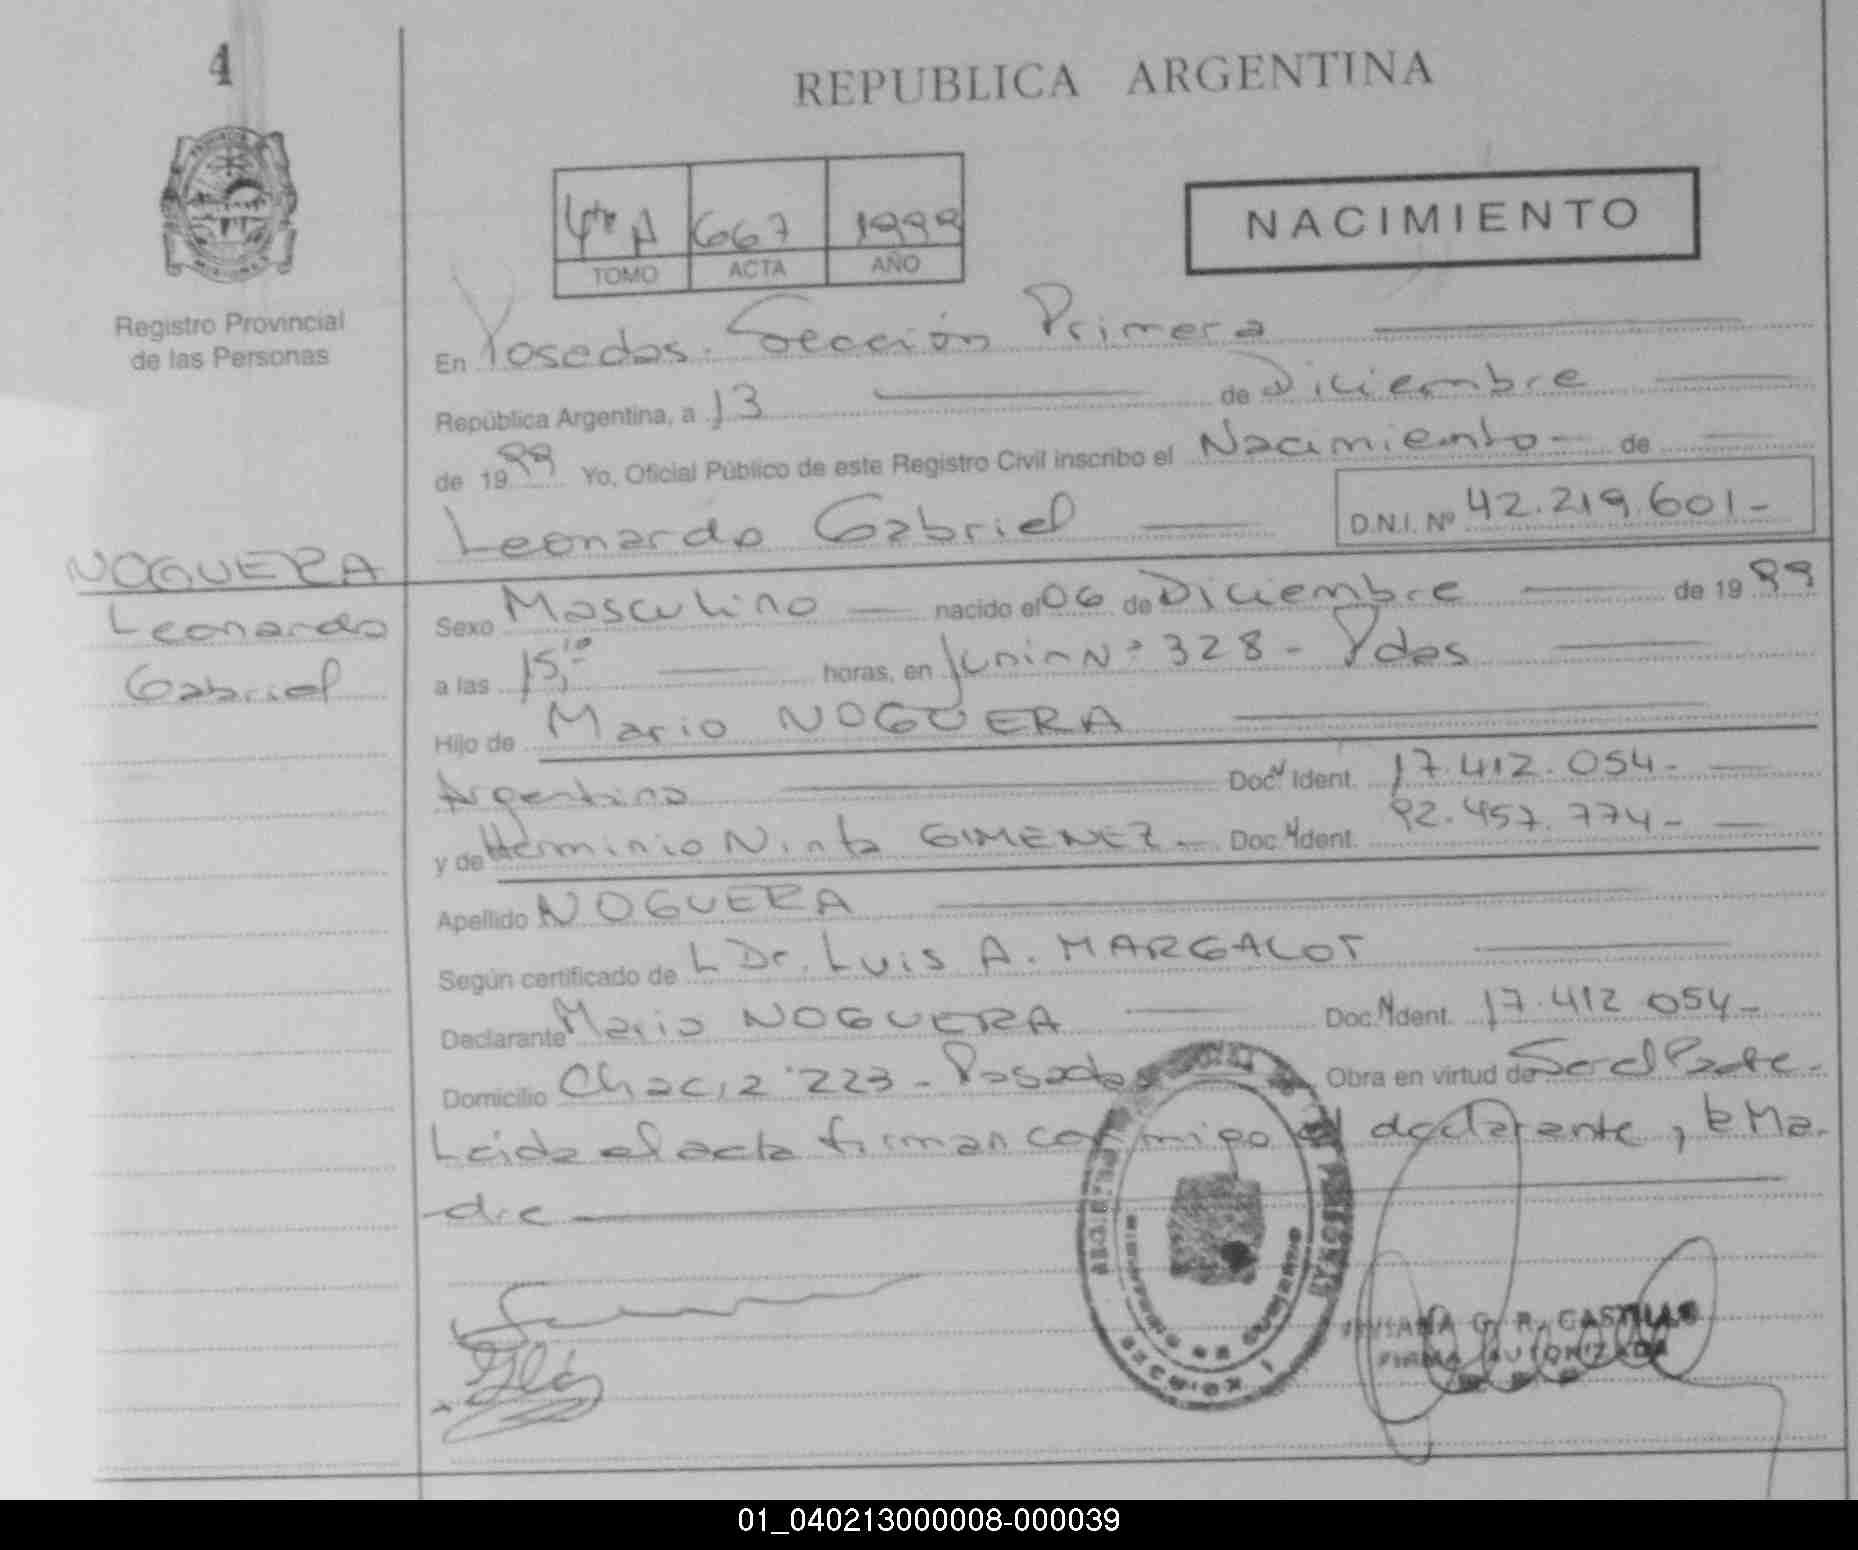 4
REPUBLICA ARGENTINA
4to A 667 1999
TOMO ACTA AÑO
NACIMIENTO
Registro Provincial
de las Personas
En Posadas. Sección Primera
República Argentina, a 13 de Diciembre
de 1999 Yo, Oficial Público de este Registro Civil inscribo el Nacimiento - de
Leonardo Gabriel D.N.I. Nº 42.219.601-
NOGUERA
Leonardo
Gabriel
Sexo Masculino nacido el 06 de Diciembre de 1999
a las 15,10 horas, en Junin Nº 328 - Pdas
Hijo de Mario NOGUERA
Argentino Doc N Ident. 17.412.054-
y de Herminio Ninfa GIMENEZ - Doc. N Ident. 92.457.774-
Apellido NOGUERA
Según certificado de L Dr. Luis A. MARGALOT
Declarante Mario NOGUERA Doc. N Ident. 17.412 054-
Domicilio Chac, 2 223 - Posadas Obra en virtud de Ser el Padre -
Leida el acta firman conmigo el declarante, y la Ma-
dre
G. R. CASTILLO
FIRMA AUTORIZADA
01_040213000008-000039